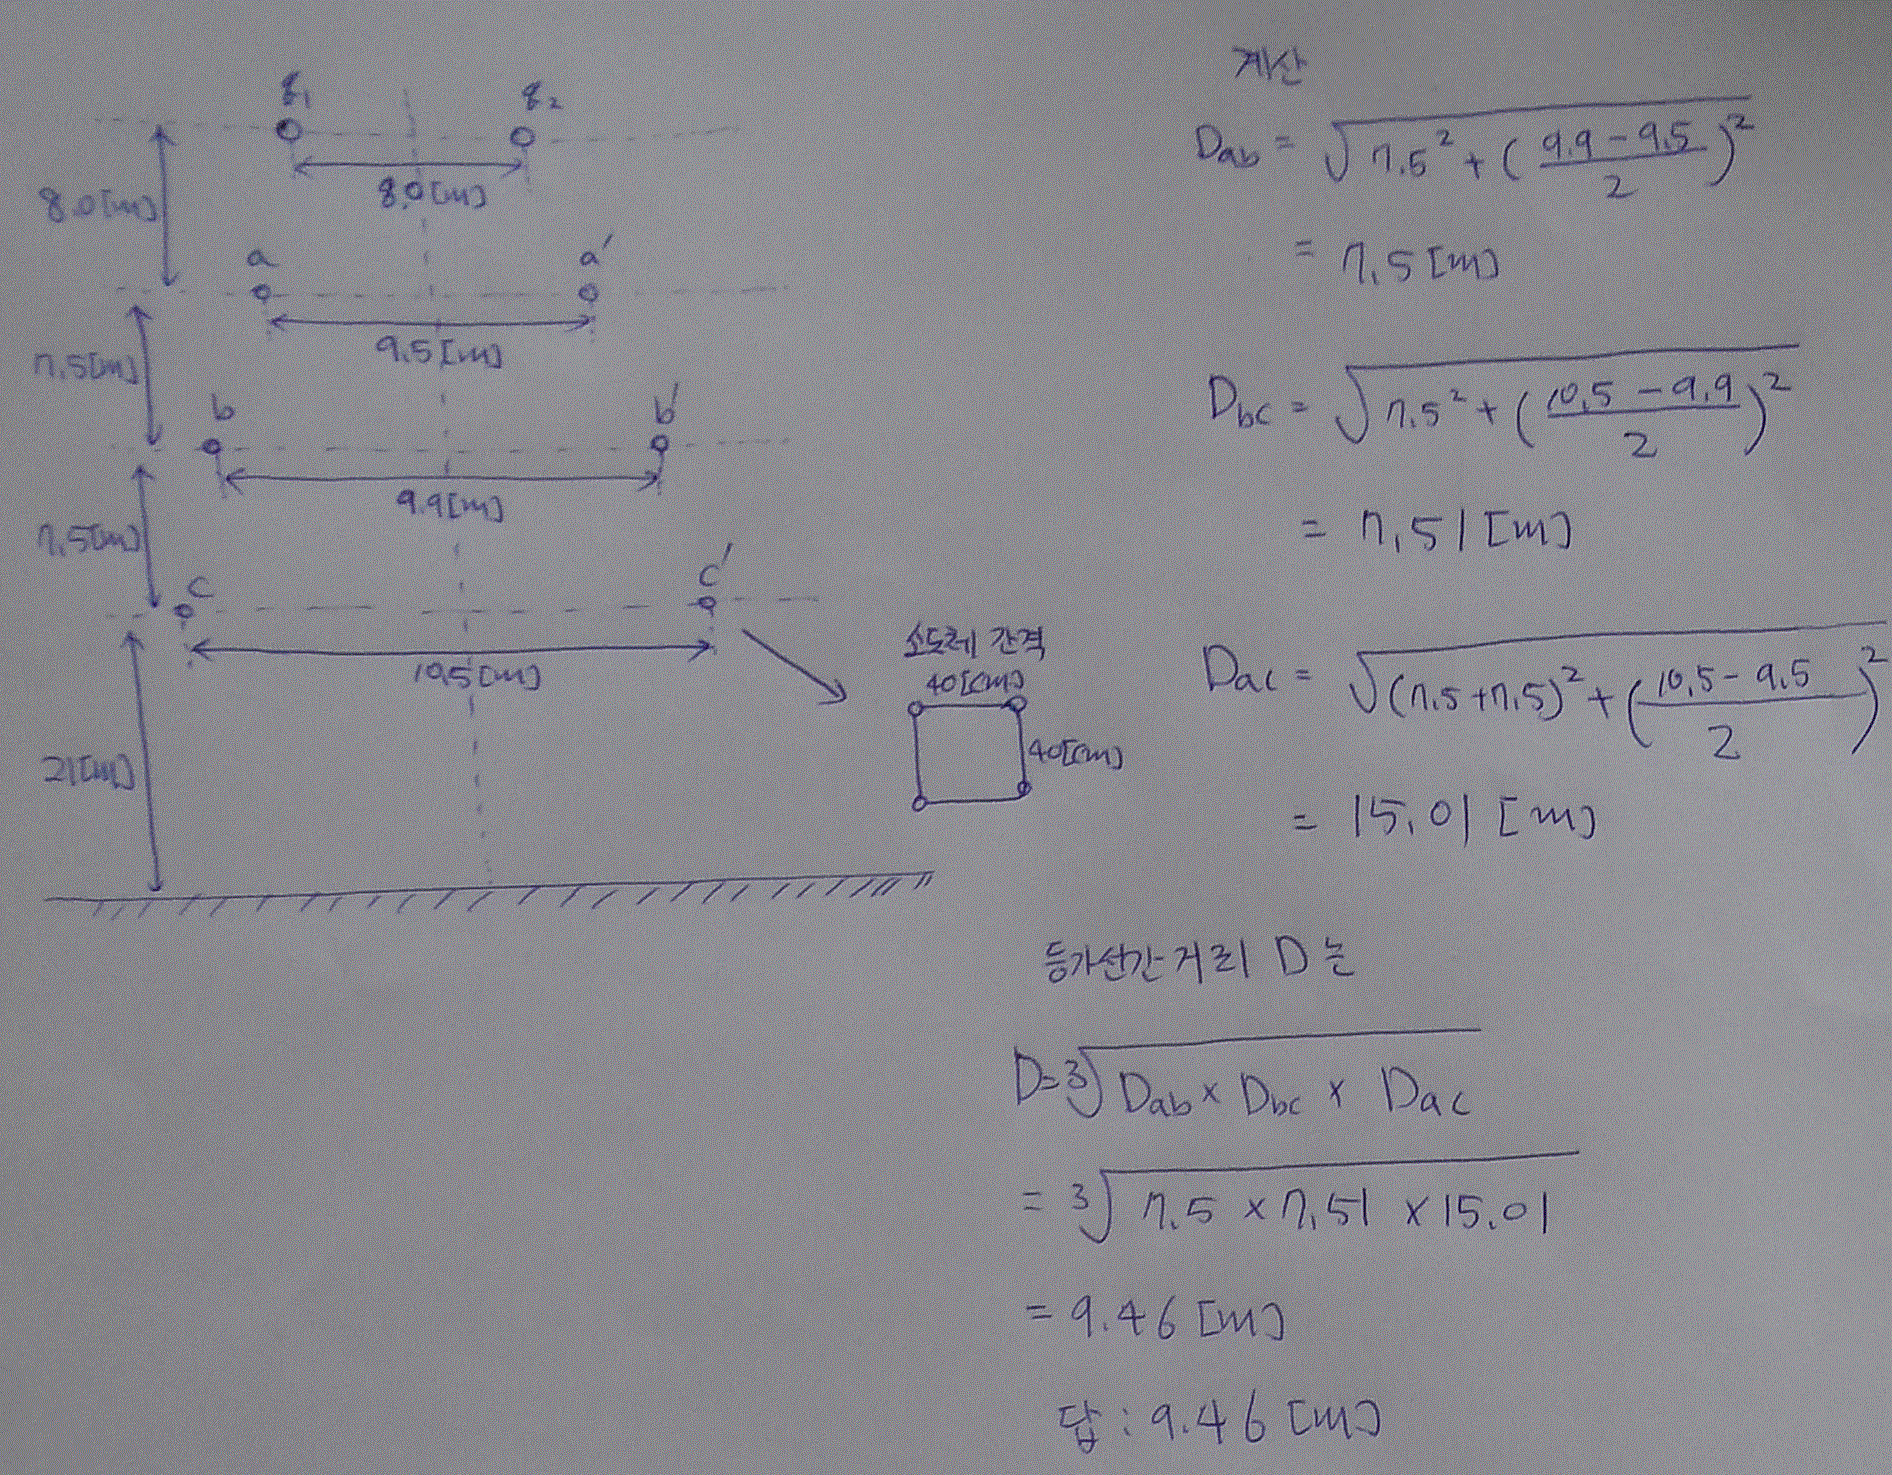 g₁ g₂
8.0[m]
8.0[m]
a a′
9.5[m]
7.5[m]
b b′
9.9[m]
7.5[m]
c c′
10.5[m]
21[m]
소도체 간격
40[cm]
40[cm]
계산
Dab = √(7.5² + ((9.9-9.5)/2)²)
= 7.5[m]
Dbc = √(7.5² + ((10.5-9.9)/2)²)
= 7.51[m]
Dac = √((7.5+7.5)² + ((10.5-9.5)/2)²)
= 15.01[m]
등가선간거리 D는
D=³√(Dab × Dbc × Dac)
= ³√(7.5 × 7.51 × 15.01)
= 9.46[m]
답 : 9.46[m]